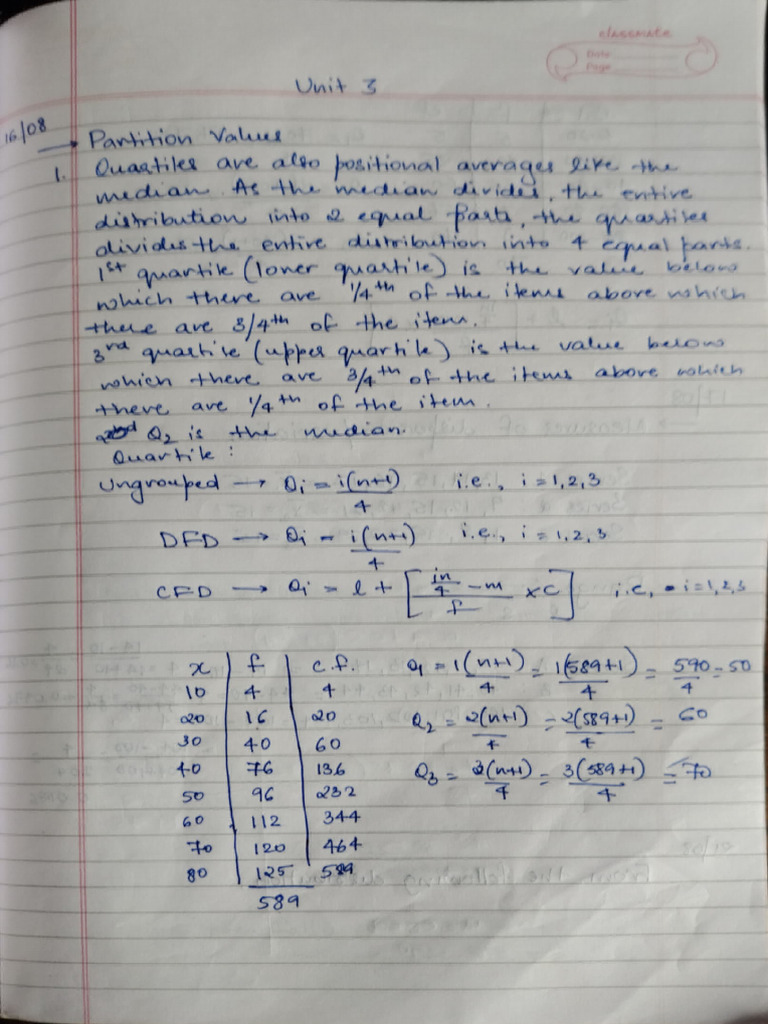 classmate
Date
Page
Unit 3
16/08
→ Partition Values
1. Quartiles are also positional averages like the
median. As the median divides, the entire
distribution into 2 equal parts, the quartiles
divides the entire distribution into 4 equal parts.
1st quartile (lower quartile) is the value below
which there are 1/4th of the items above which
there are 3/4th of the item.
3rd quartile (upper quartile) is the value below
which there are 3/4th of the items above which
there are 1/4th of the item.
Q2 is the median.
Quartile :
Ungrouped → Qi = i(n+1)/4 i.e., i = 1,2,3
DFD → Qi = i(n+1)/4 i.e., i = 1,2,3
CFD → Qi = l + [(in/4 - m)/f × C] i.e, i = 1,2,3
x f c.f. Q1 = 1(n+1)/4 = 1(589+1)/4 = 590/4 = 50
10 4 4
20 16 20 Q2 = 2(n+1)/4 = 2(589+1)/4 = 60
30 40 60
40 76 136 Q3 = 3(n+1)/4 = 3(589+1)/4 = 70
50 96 232
60 112 344
70 120 464
80 125 589
589